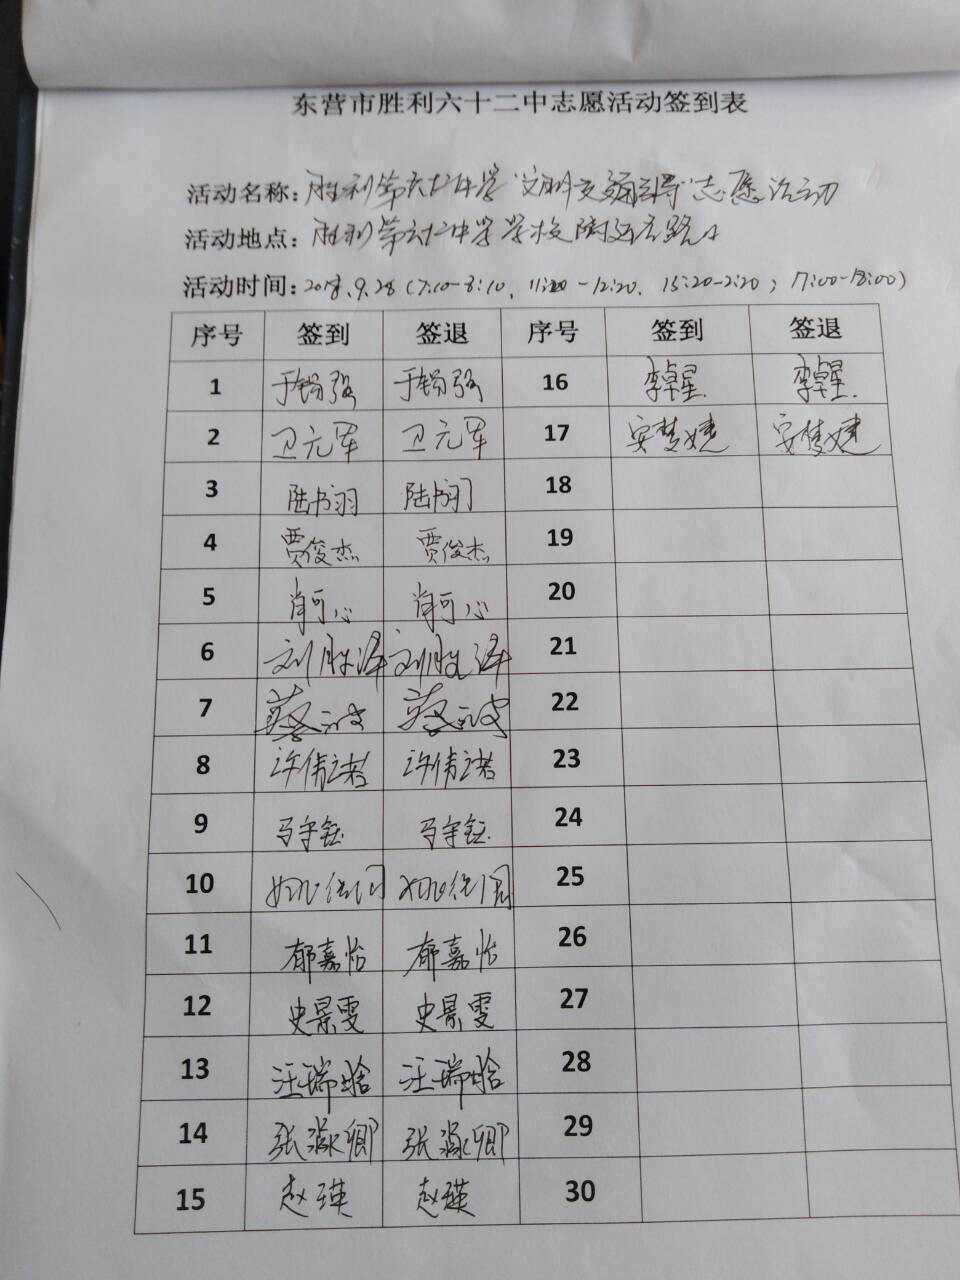 东营市胜利六十二中志愿活动签到表
活动名称：胜利第六十二中学"文明交通引导"志愿活动
活动地点：胜利第六十二中学学校附近路口
活动时间：2018.9.28（7:10-8:10，11:20-12:20，15:20-2:20；17:00-18:00）
序号 签到 签退 序号 签到 签退
1 16 李卓星 李卓星
2 卫元军 卫元军 17 安梦婕 安梦婕
3 陆书羽 陆书羽 18
4 贾俊杰 贾俊杰 19
5 肖可心 肖可心 20
6 刘胜泽 刘胜泽 21
7 蔡 蔡 22
8 许倩诺 许倩诺 23
9 马宇钰 马宇钰 24
10 25
11 郁嘉怡 郁嘉怡 26
12 史景雯 史景雯 27
13 汪瑞晗 汪瑞晗 28
14 张淼卿 张淼卿 29
15 赵瑛 赵瑛 30